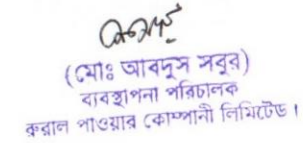 (মোঃ আবদুস সবুর)
ব্যবস্থাপনা পরিচালক
রুরাল পাওয়ার কোম্পানী লিমিটেড।